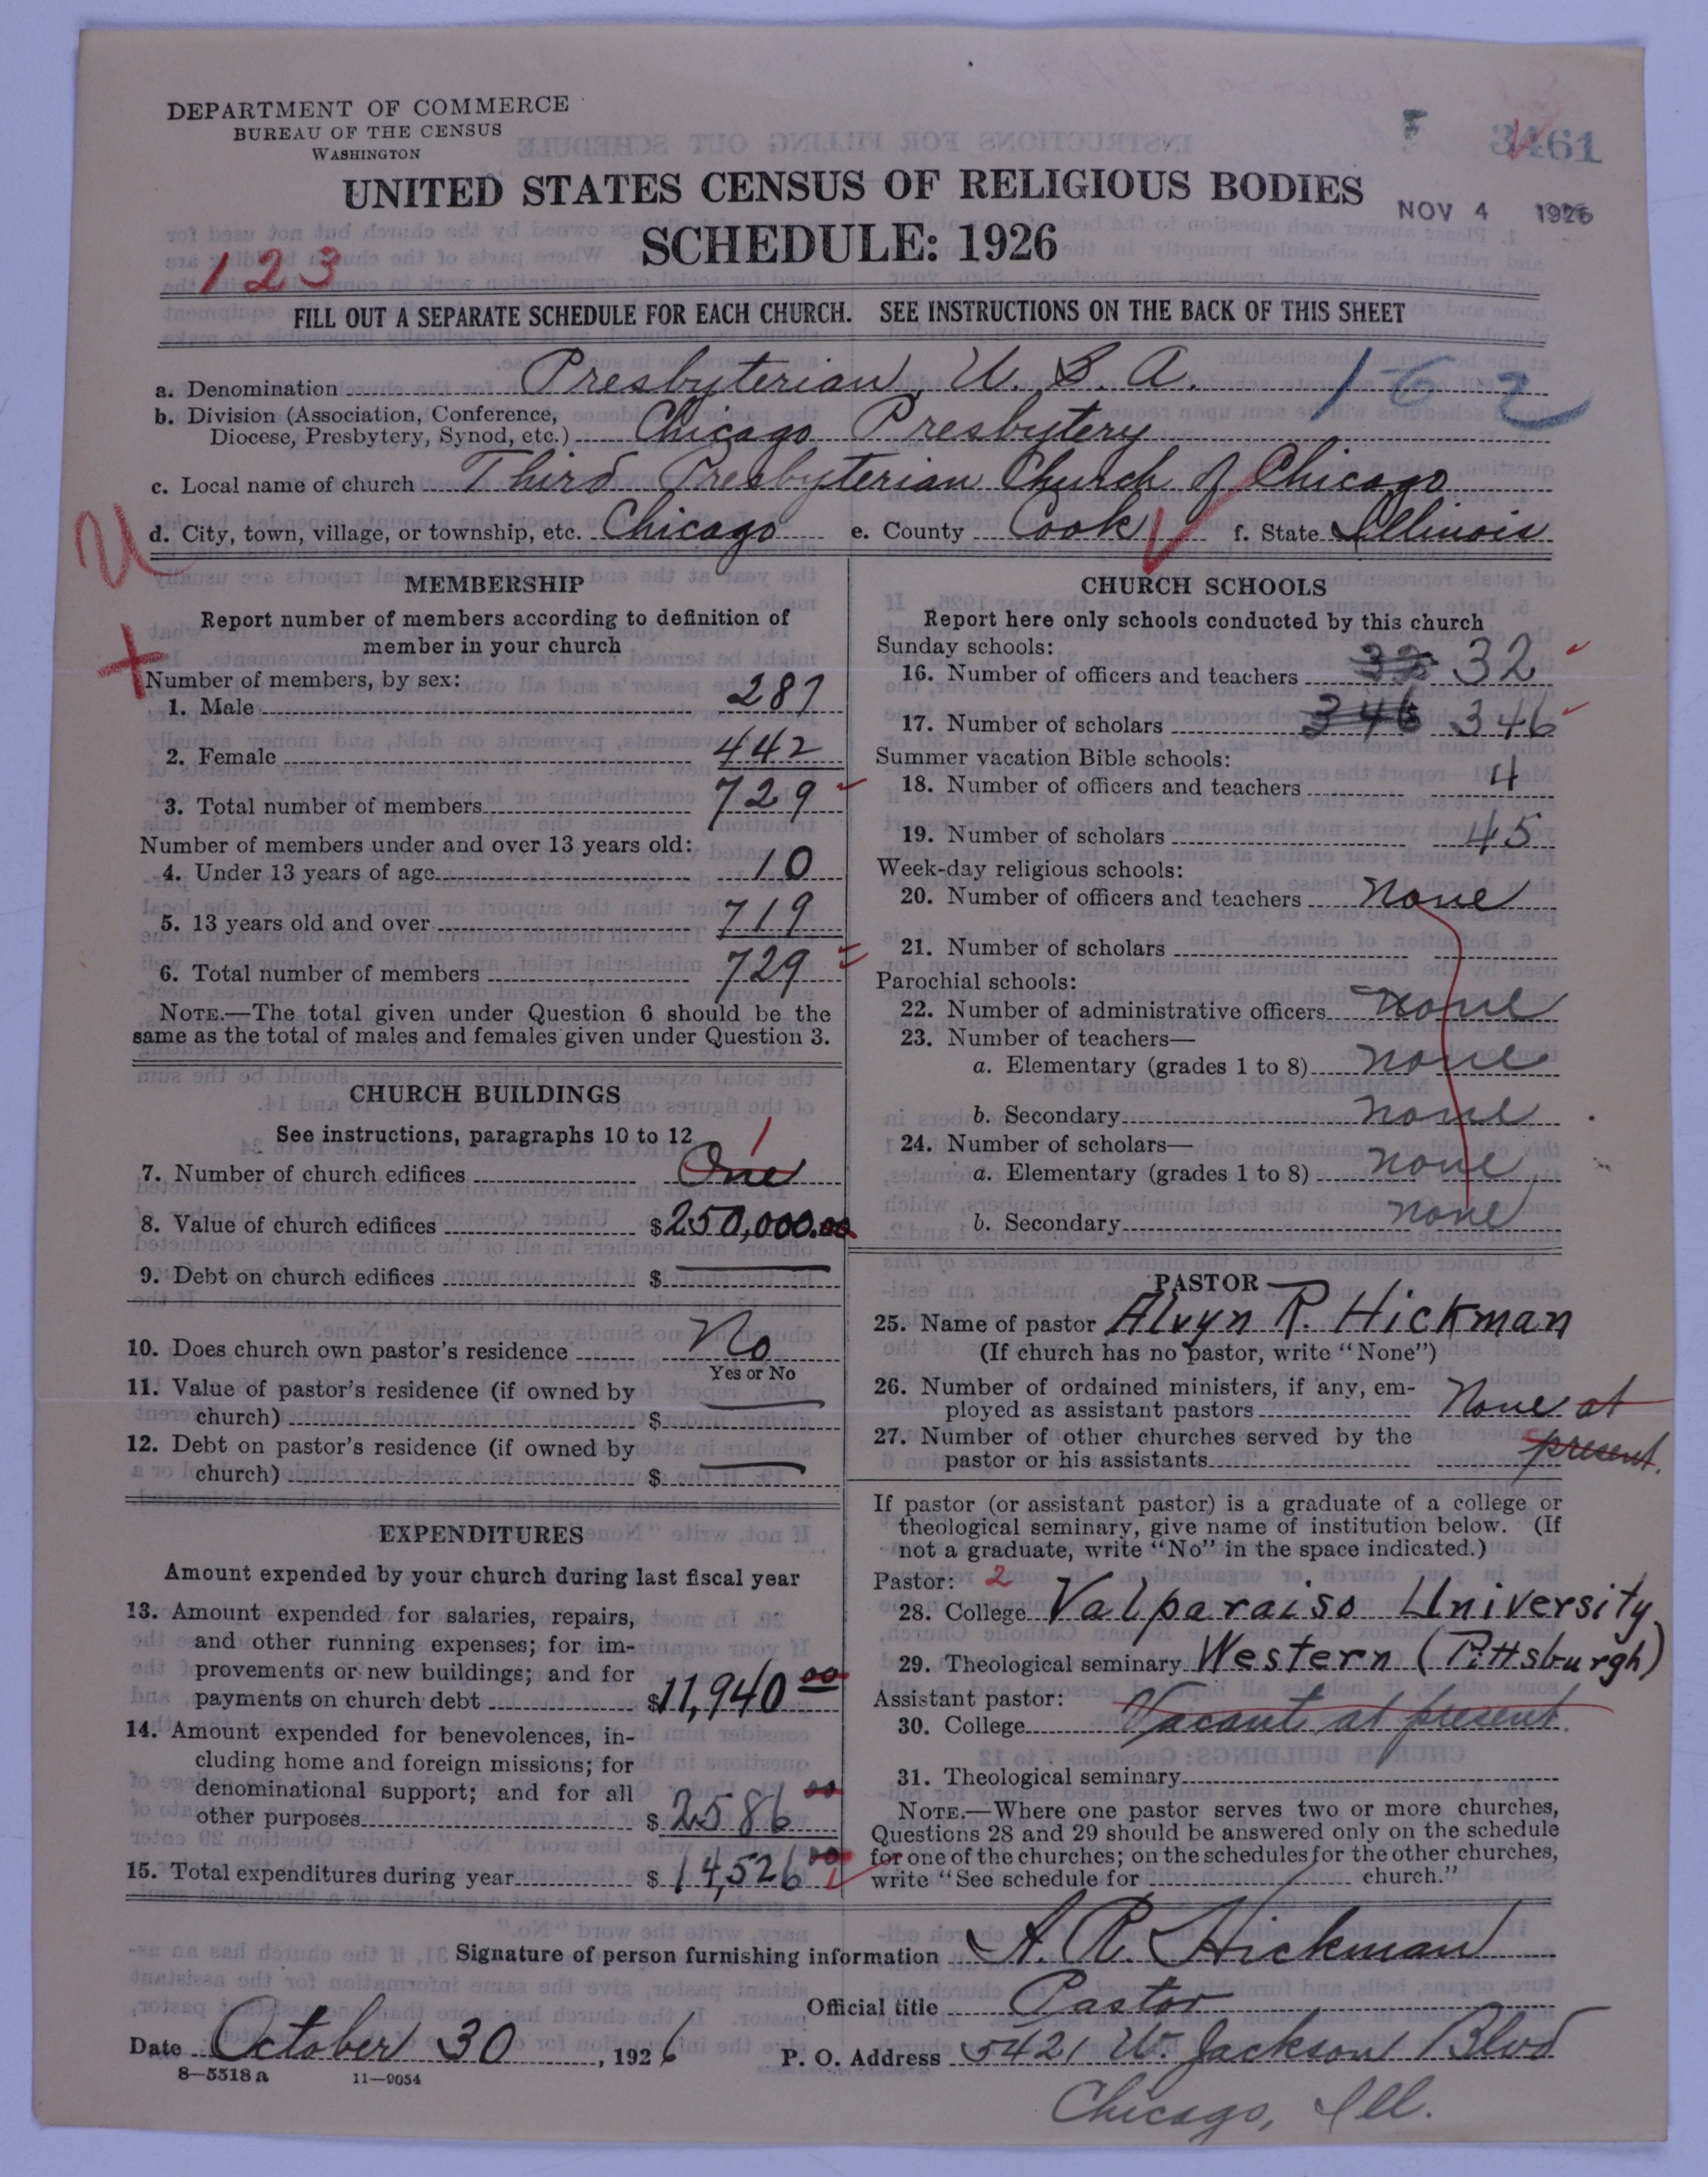 DEPARTMENT OF COMMERCE
BUREAU OF THE CENSUS
WASHINGTON
3461
UNITED STATES CENSUS OF RELIGIOUS BODIES
NOV 4 1926
SCHEDULE: 1926
123
FILL OUT A SEPARATE SCHEDULE FOR EACH CHURCH. SEE INSTRUCTIONS ON THE BACK OF THIS SHEET
a. Denomination Presbyterian, U. S. A. 162
b. Division (Association, Conference,
Diocese, Presbytery, Synod, etc.) Chicago Presbytery
c. Local name of church Third Presbyterian Church of Chicago
d. City, town, village, or township, etc. Chicago e. County Cook f. State Illinois
MEMBERSHIP
Report number of members according to definition of
member in your church
Number of members, by sex:
1. Male 287
2. Female 442
3. Total number of members 729
Number of members under and over 13 years old:
4. Under 13 years of age 10
5. 13 years old and over 719
6. Total number of members 729
NOTE.—The total given under Question 6 should be the
same as the total of males and females given under Question 3.
CHURCH BUILDINGS
See instructions, paragraphs 10 to 12
1
7. Number of church edifices One
8. Value of church edifices $250,000.00
9. Debt on church edifices $
10. Does church own pastor's residence No
Yes or No
11. Value of pastor's residence (if owned by
church) $
12. Debt on pastor's residence (if owned by
church) $
EXPENDITURES
Amount expended by your church during last fiscal year
13. Amount expended for salaries, repairs,
and other running expenses; for im-
provements or new buildings; and for
payments on church debt $11,940 00
14. Amount expended for benevolences, in-
cluding home and foreign missions; for
denominational support; and for all
other purposes $2586 00
15. Total expenditures during year $14,526 00
CHURCH SCHOOLS
Report here only schools conducted by this church
Sunday schools:
16. Number of officers and teachers 32 32
17. Number of scholars 346 346
Summer vacation Bible schools:
18. Number of officers and teachers 4
19. Number of scholars 45
Week-day religious schools:
20. Number of officers and teachers None
21. Number of scholars
Parochial schools:
22. Number of administrative officers none
23. Number of teachers—
a. Elementary (grades 1 to 8) none
b. Secondary none
24. Number of scholars—
a. Elementary (grades 1 to 8) none
b. Secondary none
PASTOR
25. Name of pastor Alvyn R. Hickman
(If church has no pastor, write "None")
26. Number of ordained ministers, if any, em-
ployed as assistant pastors None at
27. Number of other churches served by the
pastor or his assistants present.
If pastor (or assistant pastor) is a graduate of a college or
theological seminary, give name of institution below. (If
not a graduate, write "No" in the space indicated.)
Pastor: 2
28. College Valparaiso University
29. Theological seminary Western (Pittsburgh)
Assistant pastor:
30. College Vacant at present.
31. Theological seminary
NOTE.—Where one pastor serves two or more churches,
Questions 28 and 29 should be answered only on the schedule
for one of the churches; on the schedules for the other churches,
write "See schedule for church."
Signature of person furnishing information A. R. Hickman
Official title Pastor
Date October 30, 1926 P. O. Address 5421 W. Jackson Blvd
8—5518a 11—9054
Chicago, Ill.